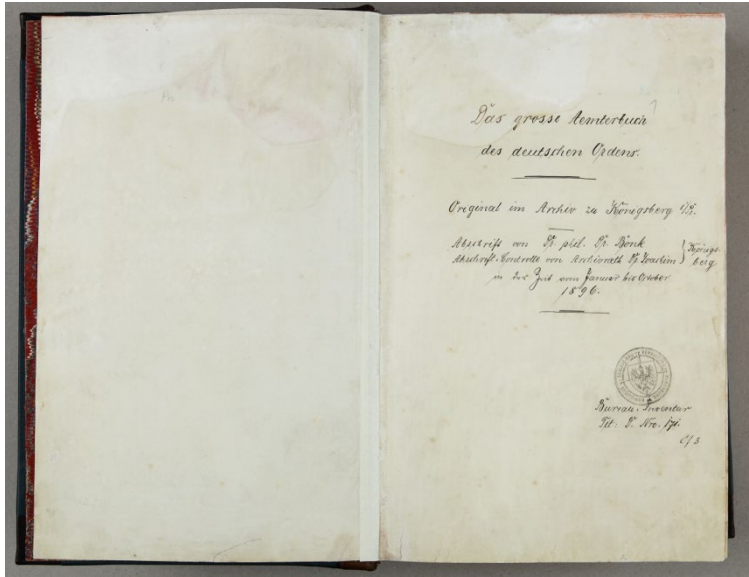 Das grosse Aemterbuch
des deutschen Ordens.
Original im Archiv zu Königsberg i/P.
Abschrift von Dr. phil. Bonk
Abschrift-Controlle von Archivrath Dr. Joachim } Königs-
berg
in der Zeit vom Januar bis October
1896.
Bureau-Inventar
Tit: D. Nro. 171.